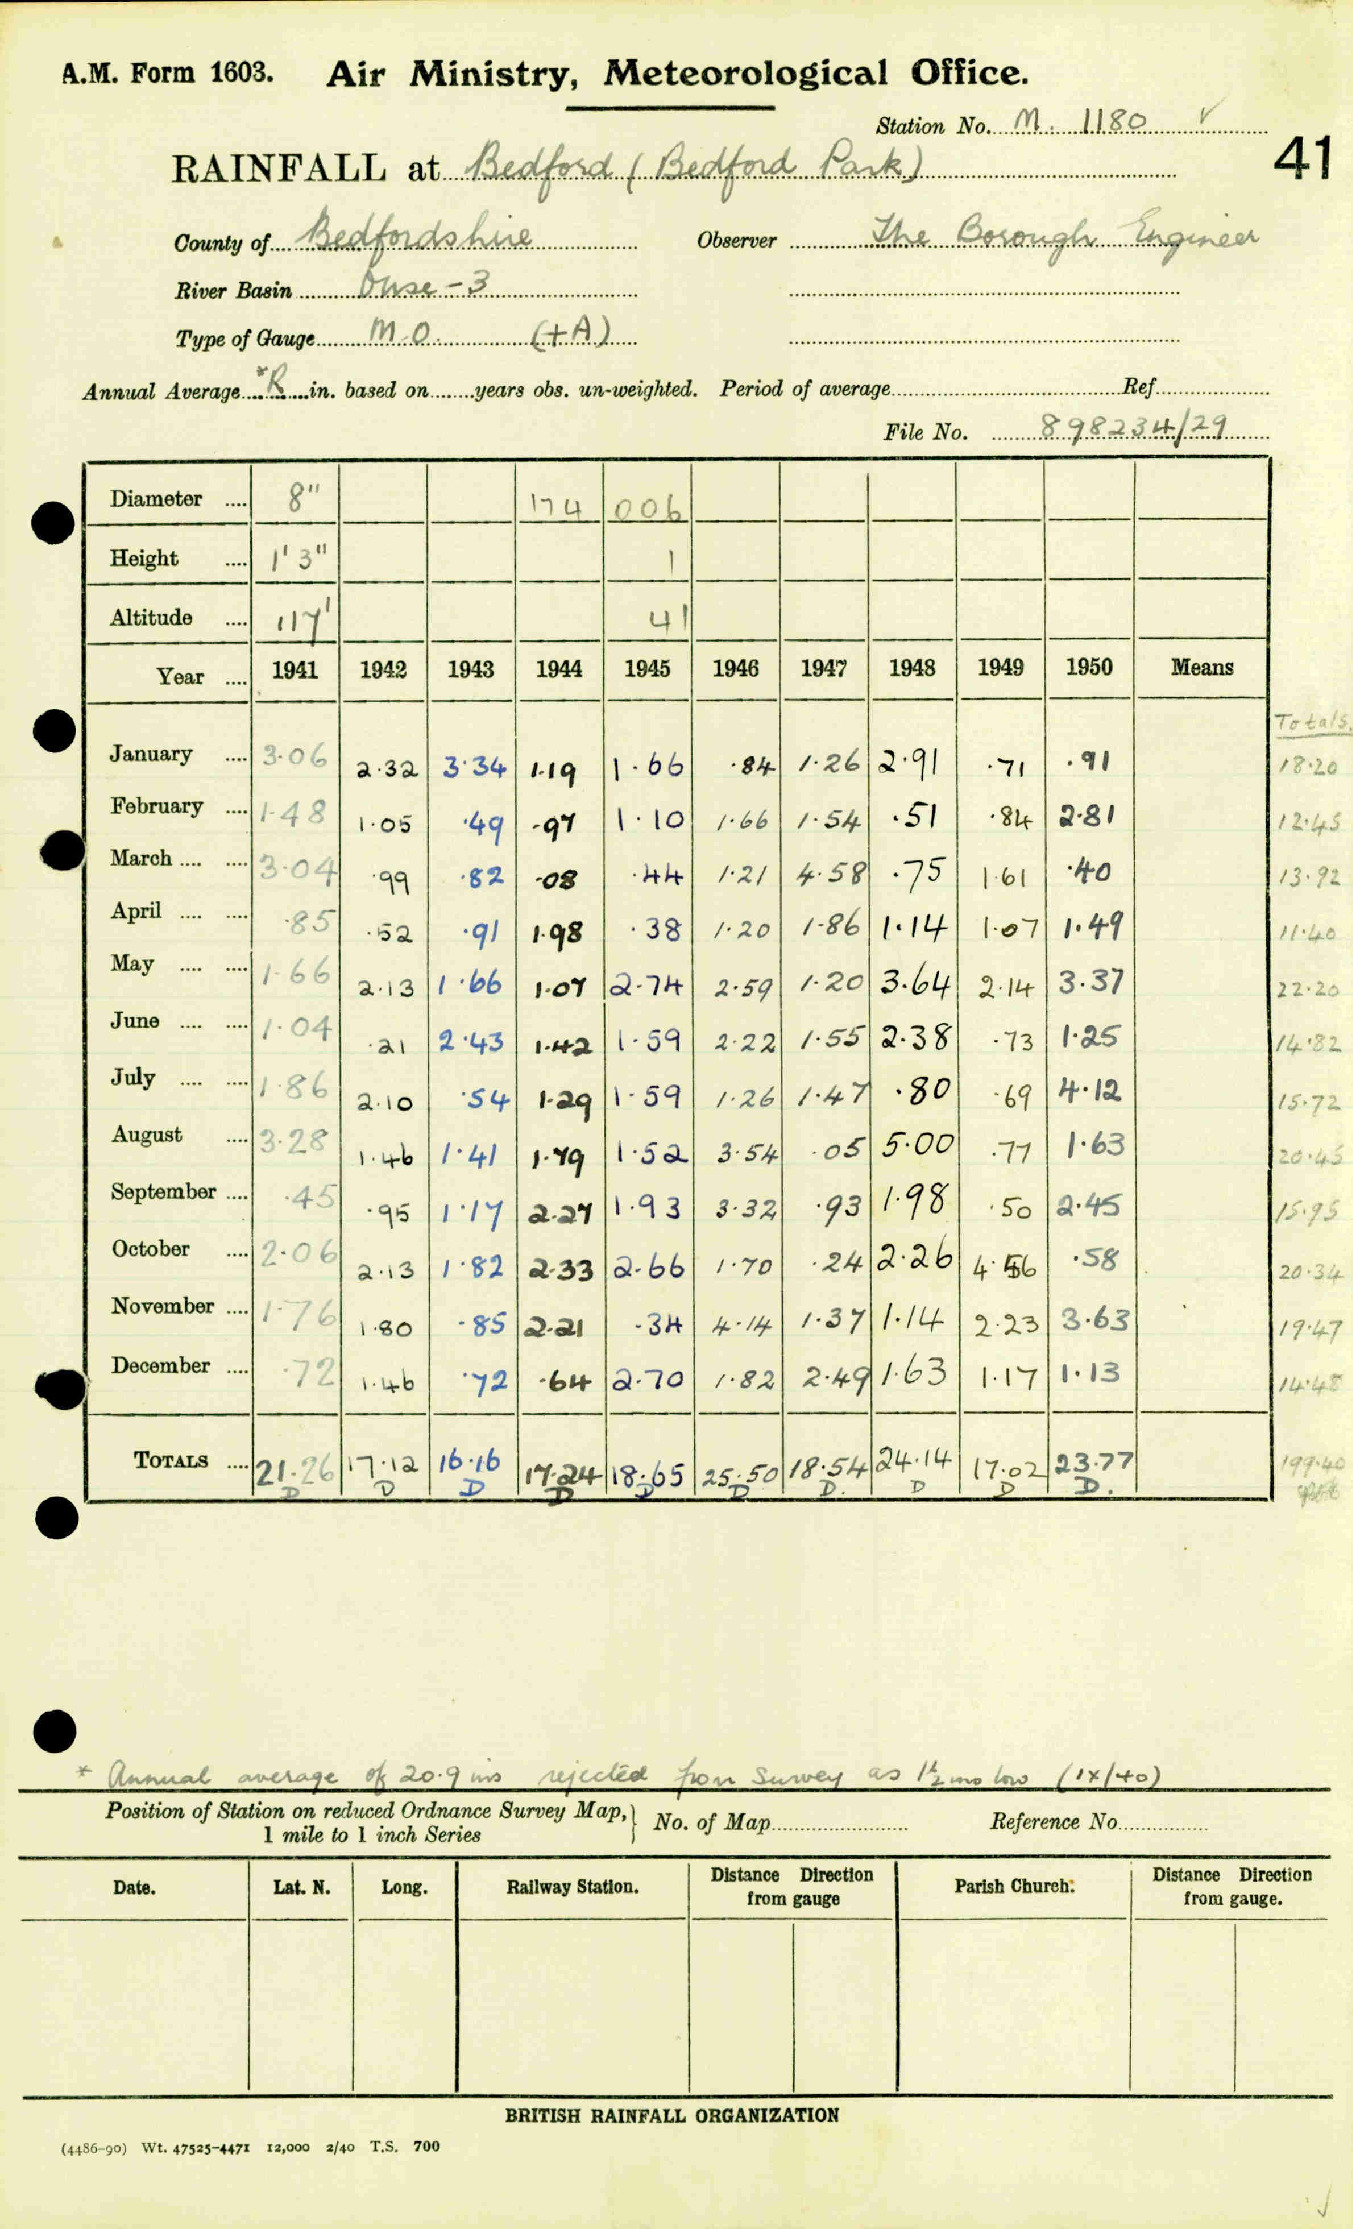 A.M. Form 1603. Air Ministry, Meteorological Office.
Station No. M. 1180 ✓
41
RAINFALL at Bedford (Bedford Park)
County of Bedfordshire Observer The Borough Engineer
River Basin Ouse-3
Type of Gauge M.O. (+A)
Annual Average *R in. based on years obs. un-weighted. Period of average Ref.
File No. 898234/29
Diameter 8" 174 006
Height 1'3" 1
Altitude 117' 41
Year 1941 1942 1943 1944 1945 1946 1947 1948 1949 1950 Means
Totals.
January 3.06 2.32 3.34 1.19 1.66 .84 1.26 2.91 .71 .91 18.20
February 1.48 1.05 .49 .97 1.10 1.66 1.54 .51 .84 2.81 12.45
March 3.04 .99 .82 .08 .44 1.21 4.58 .75 1.61 .40 13.92
April .85 .52 .91 1.98 .38 1.20 1.86 1.14 1.07 1.49 11.40
May 1.66 2.13 1.66 1.07 2.74 2.59 1.20 3.64 2.14 3.37 22.20
June 1.04 .21 2.43 1.42 1.59 2.22 1.55 2.38 .73 1.25 14.82
July 1.86 2.10 .54 1.29 1.59 1.26 1.47 .80 .69 4.12 15.72
August 3.28 1.46 1.41 1.79 1.52 3.54 .05 5.00 .77 1.63 20.45
September .45 .95 1.17 2.27 1.93 3.32 .93 1.98 .50 2.45 15.95
October 2.06 2.13 1.82 2.33 2.66 1.70 .24 2.26 4.56 .58 20.34
November 1.76 1.80 .85 2.21 .34 4.14 1.37 1.14 2.23 3.63 19.47
December .72 1.46 .72 .64 2.70 1.82 2.49 1.63 1.17 1.13 14.48
TOTALS 21.26 17.12 16.16 17.24 18.65 25.50 18.54 24.14 17.02 23.77 199.40
D D D D D D D. D D D.
* Annual average of 20.9 ins rejected from Survey as 1½ ins low (1x/40)
Position of Station on reduced Ordnance Survey Map, 1 mile to 1 inch Series } No. of Map Reference No.
Date. Lat. N. Long. Railway Station. Distance Direction from gauge Parish Church. Distance Direction from gauge.
BRITISH RAINFALL ORGANIZATION
(4486-90) Wt. 47525-4471 12,000 2/40 T.S. 700